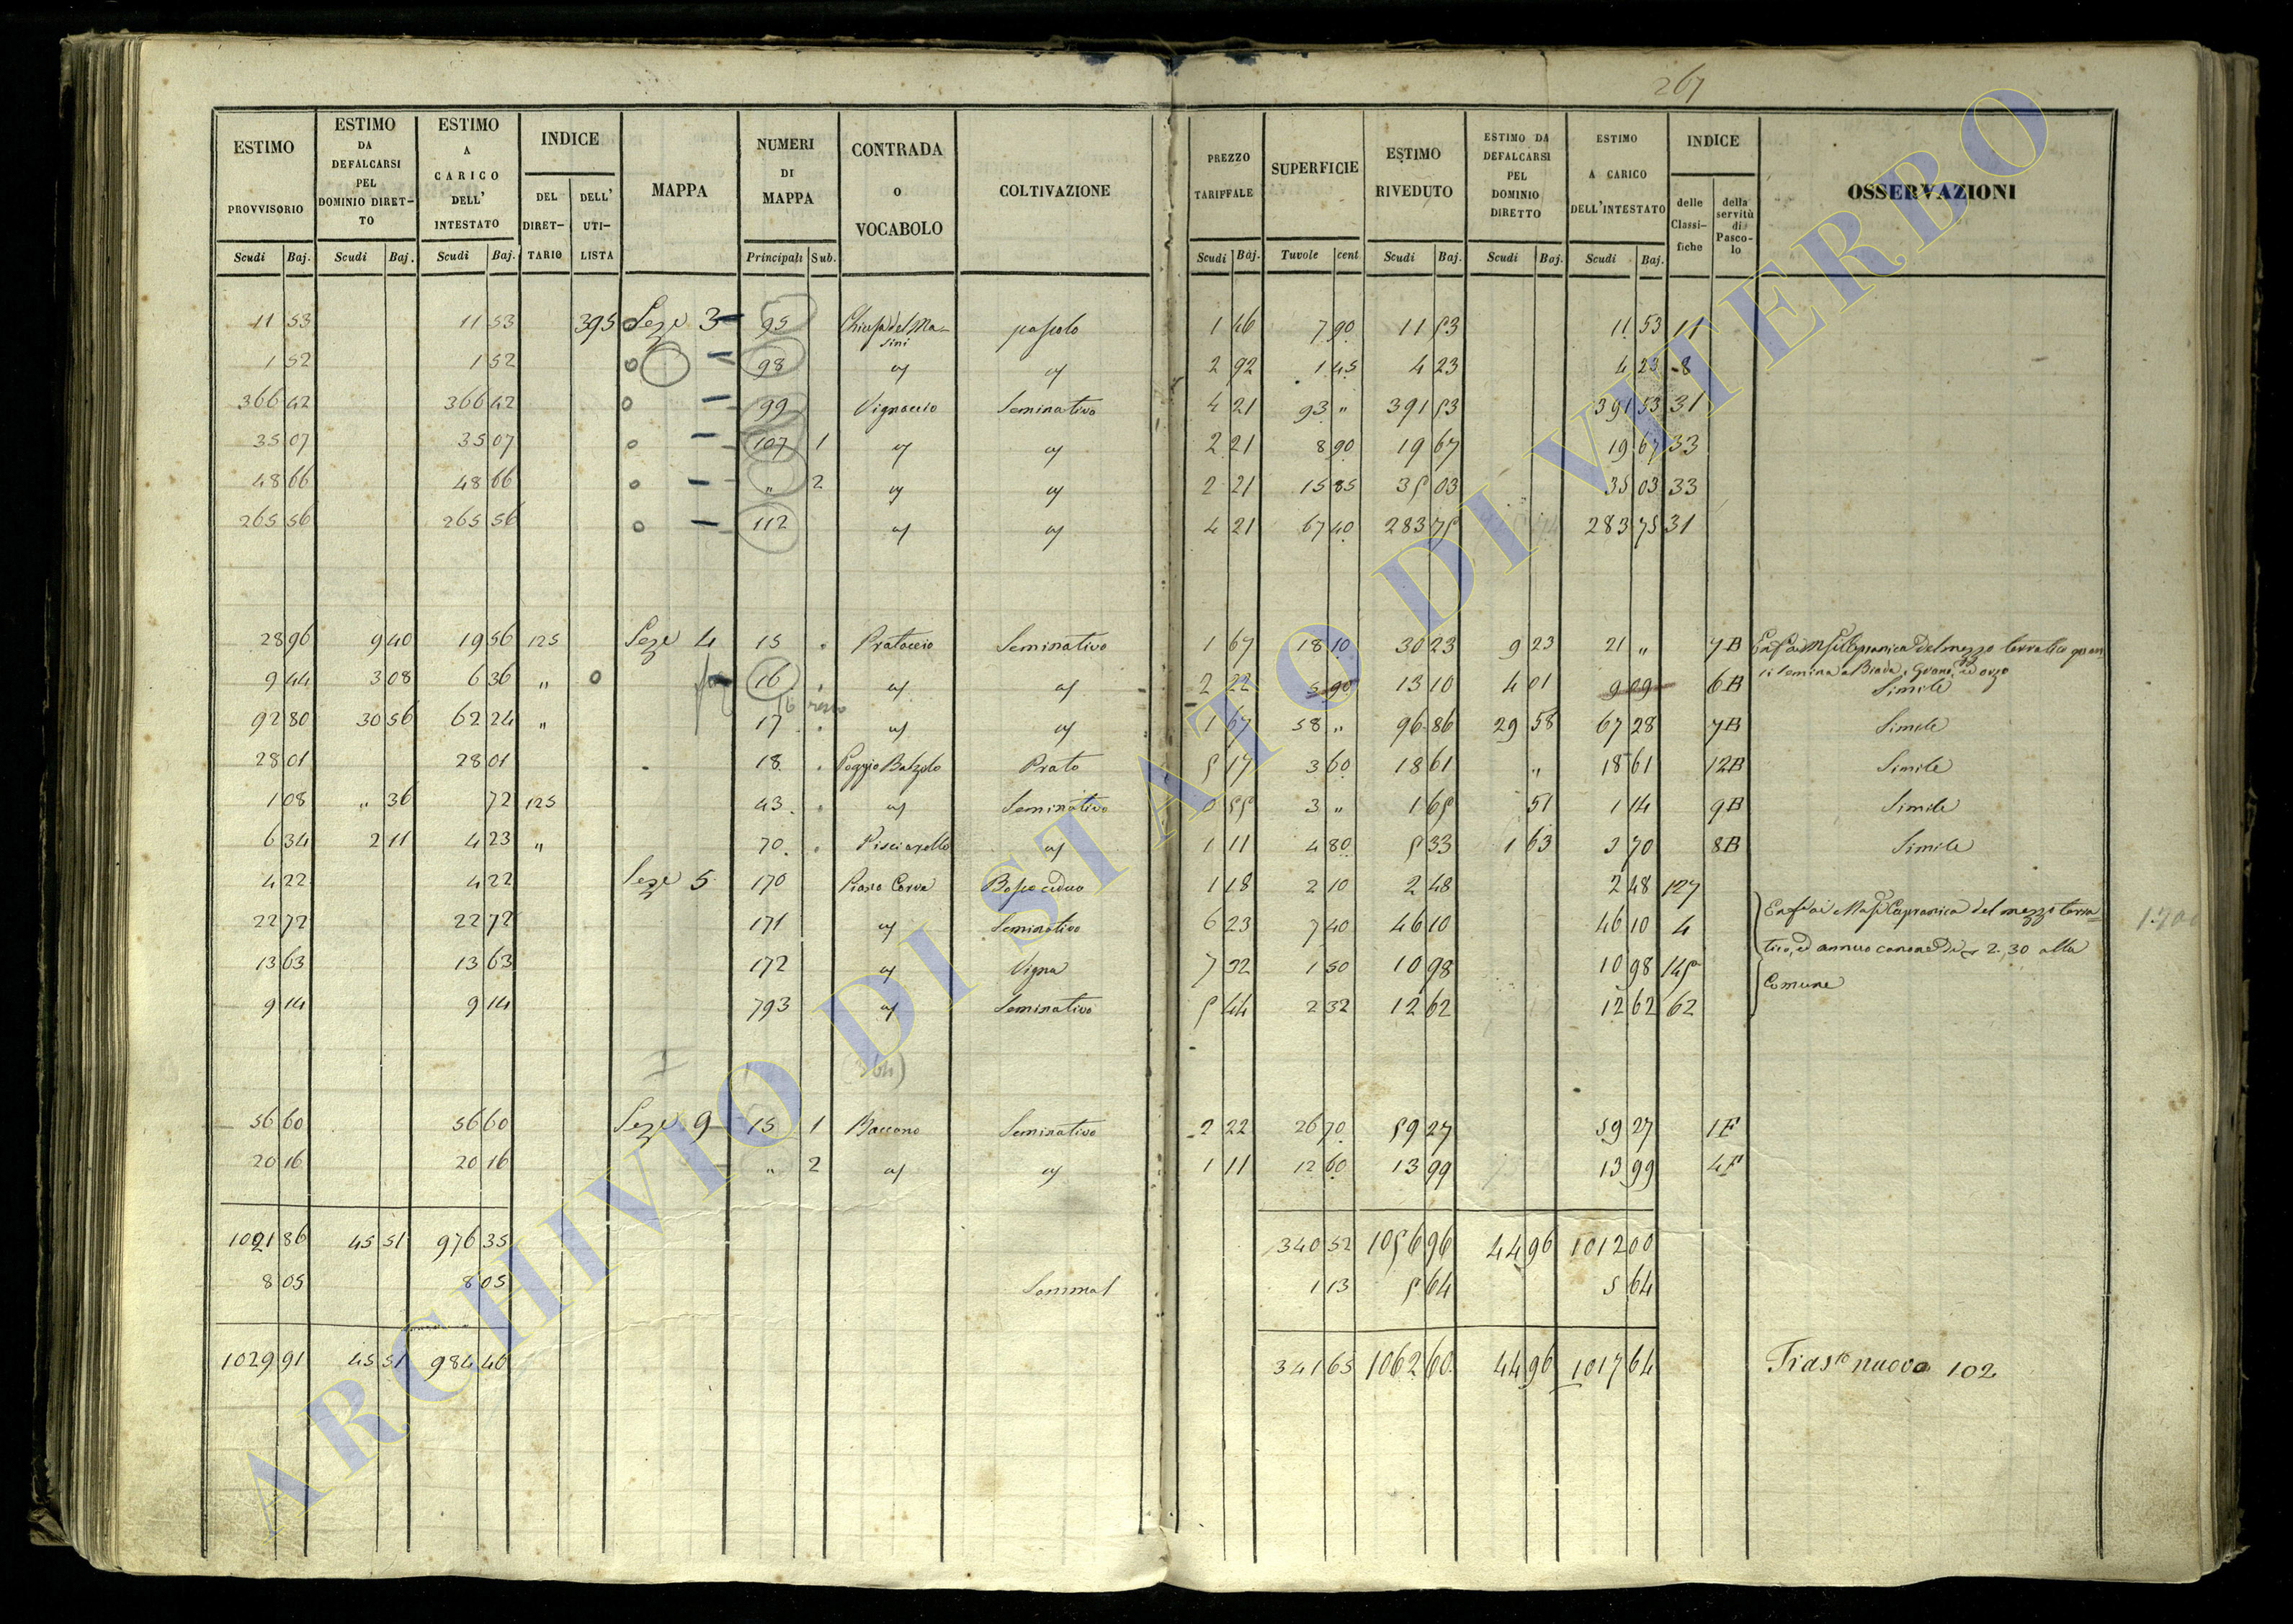 267
ESTIMO PROVVISORIO Scudi Baj.
ESTIMO DA DEFALCARSI PEL DOMINIO DIRET- TO Scudi Baj.
ESTIMO A CARICO DELL' INTESTATO Scudi Baj.
INDICE DEL DIRET- TARIO DELL' UTI- LISTA
MAPPA
NUMERI DI MAPPA Principali Sub.
CONTRADA O VOCABOLO
COLTIVAZIONE
PREZZO TARIFFALE Scudi Baj.
SUPERFICIE Tavole cent
ESTIMO RIVEDUTO Scudi Baj.
ESTIMO DA DEFALCARSI PEL DOMINIO DIRETTO Scudi Baj.
ESTIMO A CARICO DELL'INTESTATO Scudi Baj.
INDICE delle Classi- fiche della servitù di Pasco- lo
OSSERVAZIONI
11 53 11 53 395 Seze 3 95 Chiusa del Ma- sini pascolo 1 46 7 90 11 53 11 53 11
1 52 1 52 98 " " 2 92 1 45 4 23 4 23 8
366 42 366 42 99 Vignaccio Seminativo 4 21 93 " 391 53 391 53 31
35 07 35 07 107 1 " " 2 21 8 90 19 67 19 67 33
48 66 48 66 " 2 " " 2 21 15 85 35 03 35 03 33
265 56 265 56 112 " " 4 21 67 40 283 75 283 75 31
28 96 9 40 19 56 125 Seze 4 15 Prataccio Seminativo 1 67 18 10 30 23 9 23 21 " 7B del mezzo terratico
si semina a Biada, Grano, ed orzo
9 44 3 08 6 36 " 16 " " 2 22 5 90 13 10 4 01 9 09 6B Simile
16 resto
92 80 30 56 62 24 " 17 " " 1 67 58 " 96 86 29 58 67 28 7B Simile
28 01 28 01 18 Poggio Batzolo Prato 5 17 3 60 18 61 " 18 61 12B Simile
1 08 " 36 72 125 43 " Seminativo 0 55 3 " 1 65 51 1 14 9B Simile
6 34 2 11 4 23 " 70 Pisciarello " 1 11 4 80 5 33 1 63 3 70 8B Simile
4 22 4 22 Seze 5 170 Piana Cerva Bosco ceduo 1 18 2 10 2 48 2 48 127
22 72 22 72 171 " Seminativo 6 23 7 40 46 10 46 10 4 Capranica del mezzo terra-
tico, ed annuo canone di 2.,30 alla
13 63 13 63 172 " Vigna 7 32 1 50 10 98 10 98 145
Comune
9 14 9 14 793 " Seminativo 5 44 2 32 12 62 12 62 62
56 60 56 60 Seze 9 15 1 Baccano Seminativo 2 22 26 70 59 27 59 27 1F
20 16 20 16 " 2 " " 1 11 12 60 13 99 13 99 4F
1021 86 45 51 976 35 340 52 1056 96 44 96 1012 00
8 05 8 05 1 13 5 64 5 64
1029 91 45 51 984 40 341 65 1062 60 44 96 1017 64 Tras.to nuovo 102
ARCHIVIO DI STATO DI VITERBO